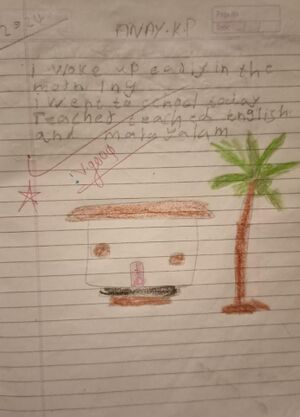 ANAY.K.P
i woke up early in the
morning
i went to school today
Teacher teached english
and malayalam
V.good